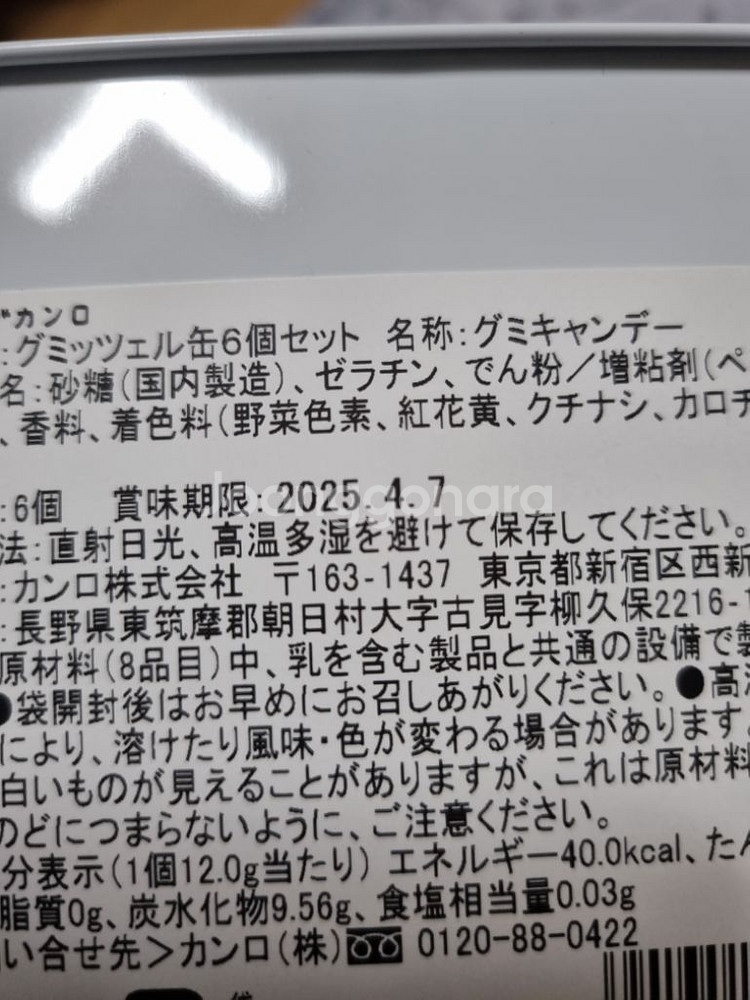 カンロ
:グミッツェル缶6個セット 名称:グミキャンデー
名:砂糖(国内製造)、ゼラチン、でん粉/増粘剤(ペ
、香料、着色料(野菜色素、紅花黄、クチナシ、カロチ
:6個 賞味期限:2025.4.7
法:直射日光、高温多湿を避けて保存してください。
:カンロ株式会社 〒163-1437 東京都新宿区西新
:長野県東筑摩郡朝日村大字古見字柳久保2216-1
原材料(8品目)中、乳を含む製品と共通の設備で製
●袋開封後はお早めにお召しあがりください。●高温
により、溶けたり風味・色が変わる場合があります。
白いものが見えることがありますが、これは原材料
のどにつまらないように、ご注意ください。
分表示(1個12.0g当たり) エネルギー40.0kcal、たん
脂質0g、炭水化物9.56g、食塩相当量0.03g
い合せ先>カンロ(株) 0120-88-0422